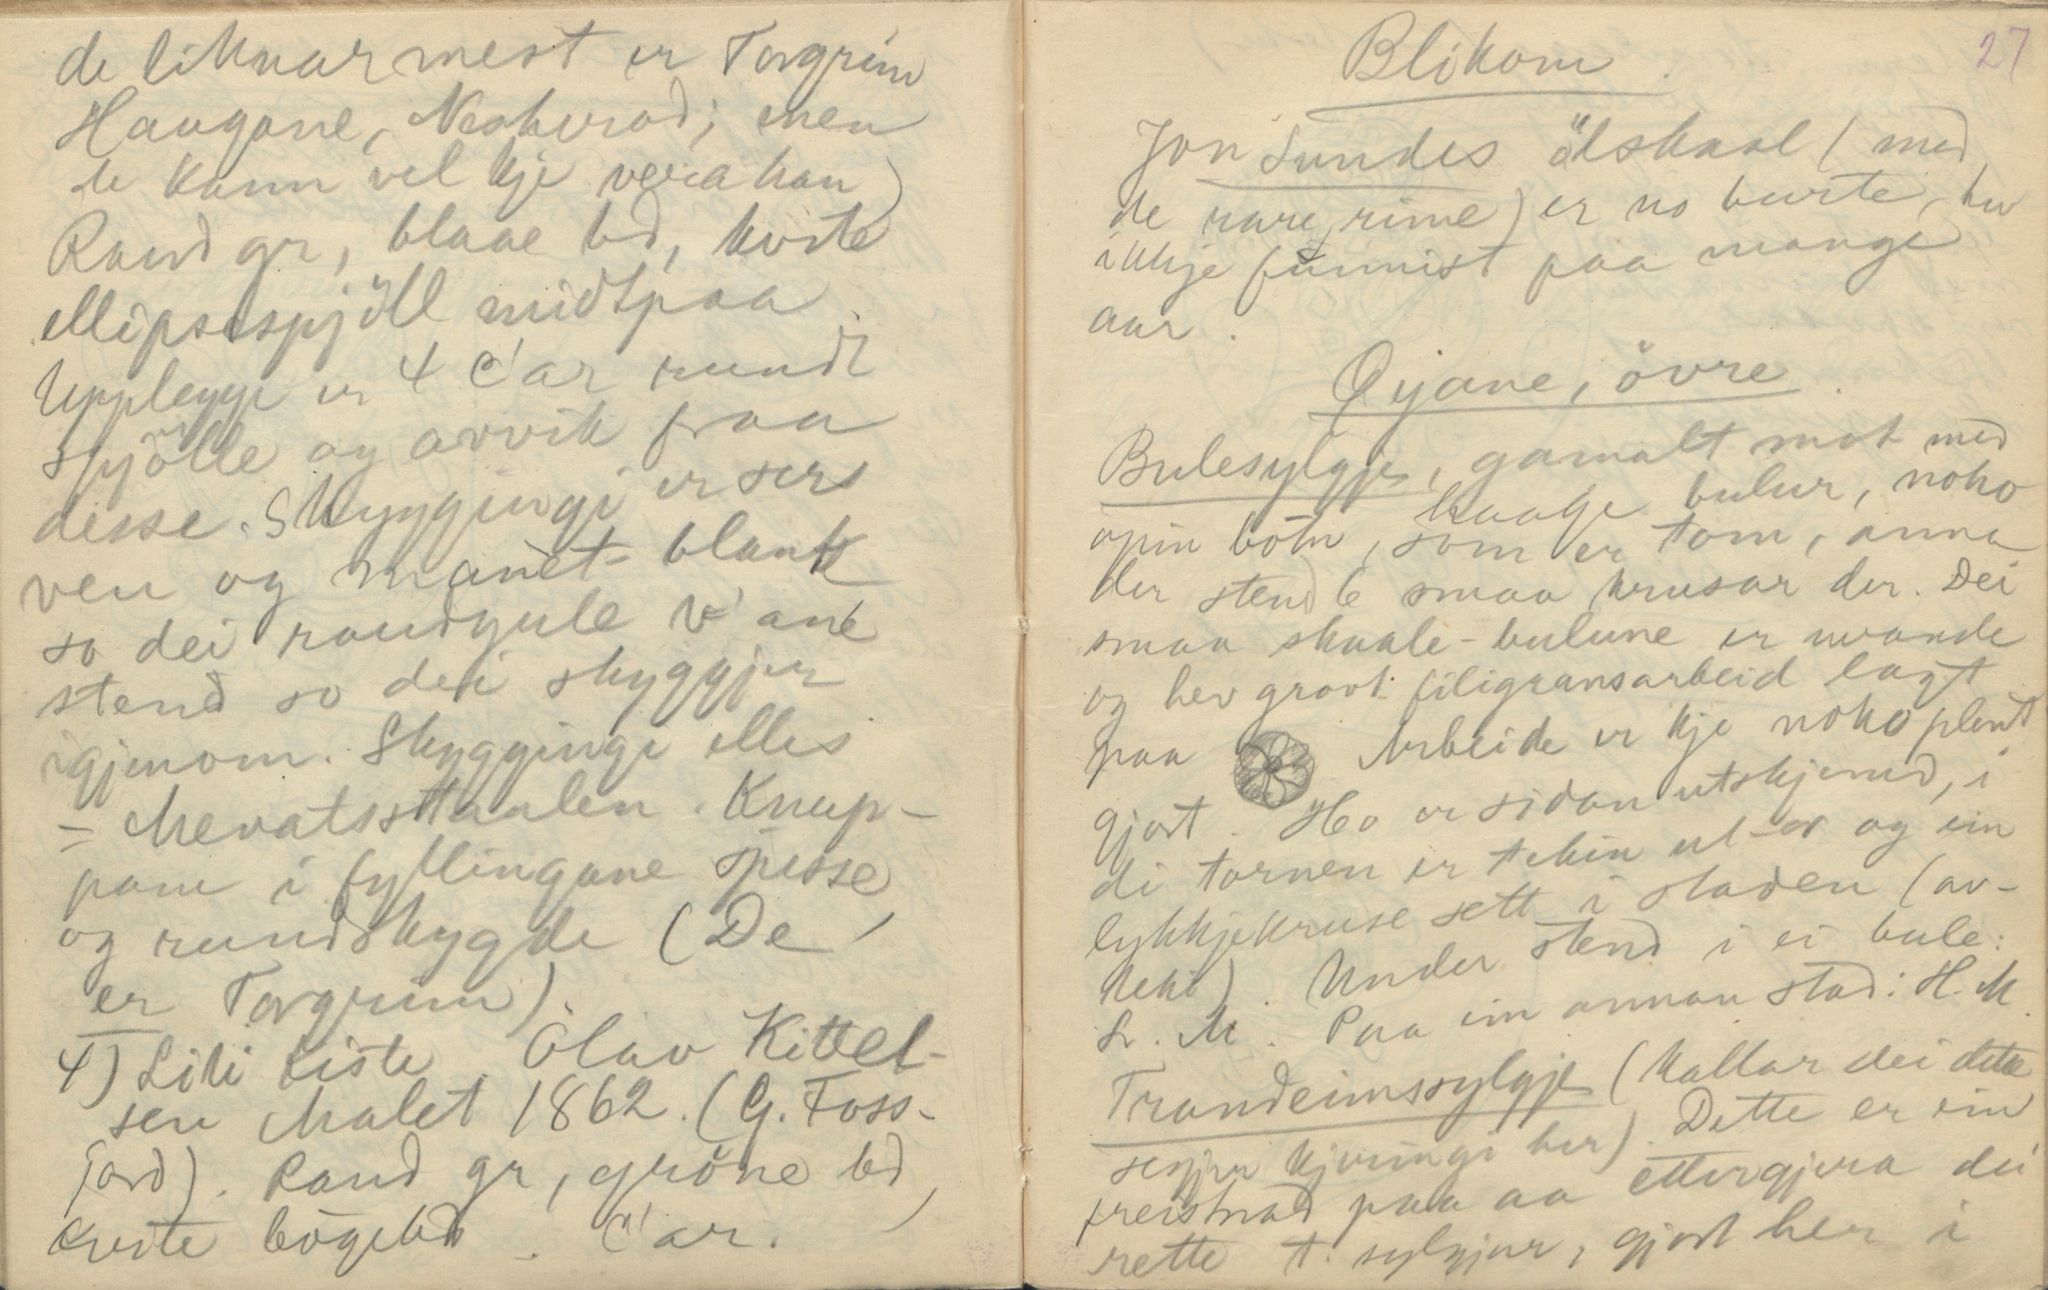 de liknar mest er Torgrim
Haugane, Neskverad; men
de kann vel kje vera han)
Raud gr, blaae bd, kvite
ellipsespjöll midtpaa.
Upplegge er 4 C'ar rundt
spjölle og avvik fraa
disse. Skyggingi er sers
ven og manet- blank
so dei raudgule v'ane
stend so dei skyggjer
igjenom. Skyggingi elles
= Mevatsstaalen. Knup-
pane i fyllingane spisse
og rundskygde (De
er Torgrim).
4) Liti kiste. Olav Kittel-
sen Malet 1862. (G. Foss-
jord). Raud gr, gröne bd,
kvite bögebd. C'ar.
27
Blikom.
Jon Sundes ölskaal (med
de rare rime) er no burte, hev
ikkje funnist paa mange
aar.
Øyane, övre.
Bulesylgje, gamalt mot med
haage bulur, noko
open botn, som er tom, anna
der stend 6 smaa krusar der. Dei
smaa skaale-bulune er uvande
og hev grovt filigransarbeid lagt
paa Arbeide er kje noko plent
gjort. Ho er sidan utskjemd, i
di tornen er tekin ut or og ein
lykkjekruse sett i staden (av-
lekk). Under stend i ei bule:
L. M. Paa ein annan stad: H. M.
Trondeimssylgje (kallar dei dette
segjer kjeringi her). Dette er ein
freistnad paa aa ettergjera dei
rette t. sylgjur, gjort her i